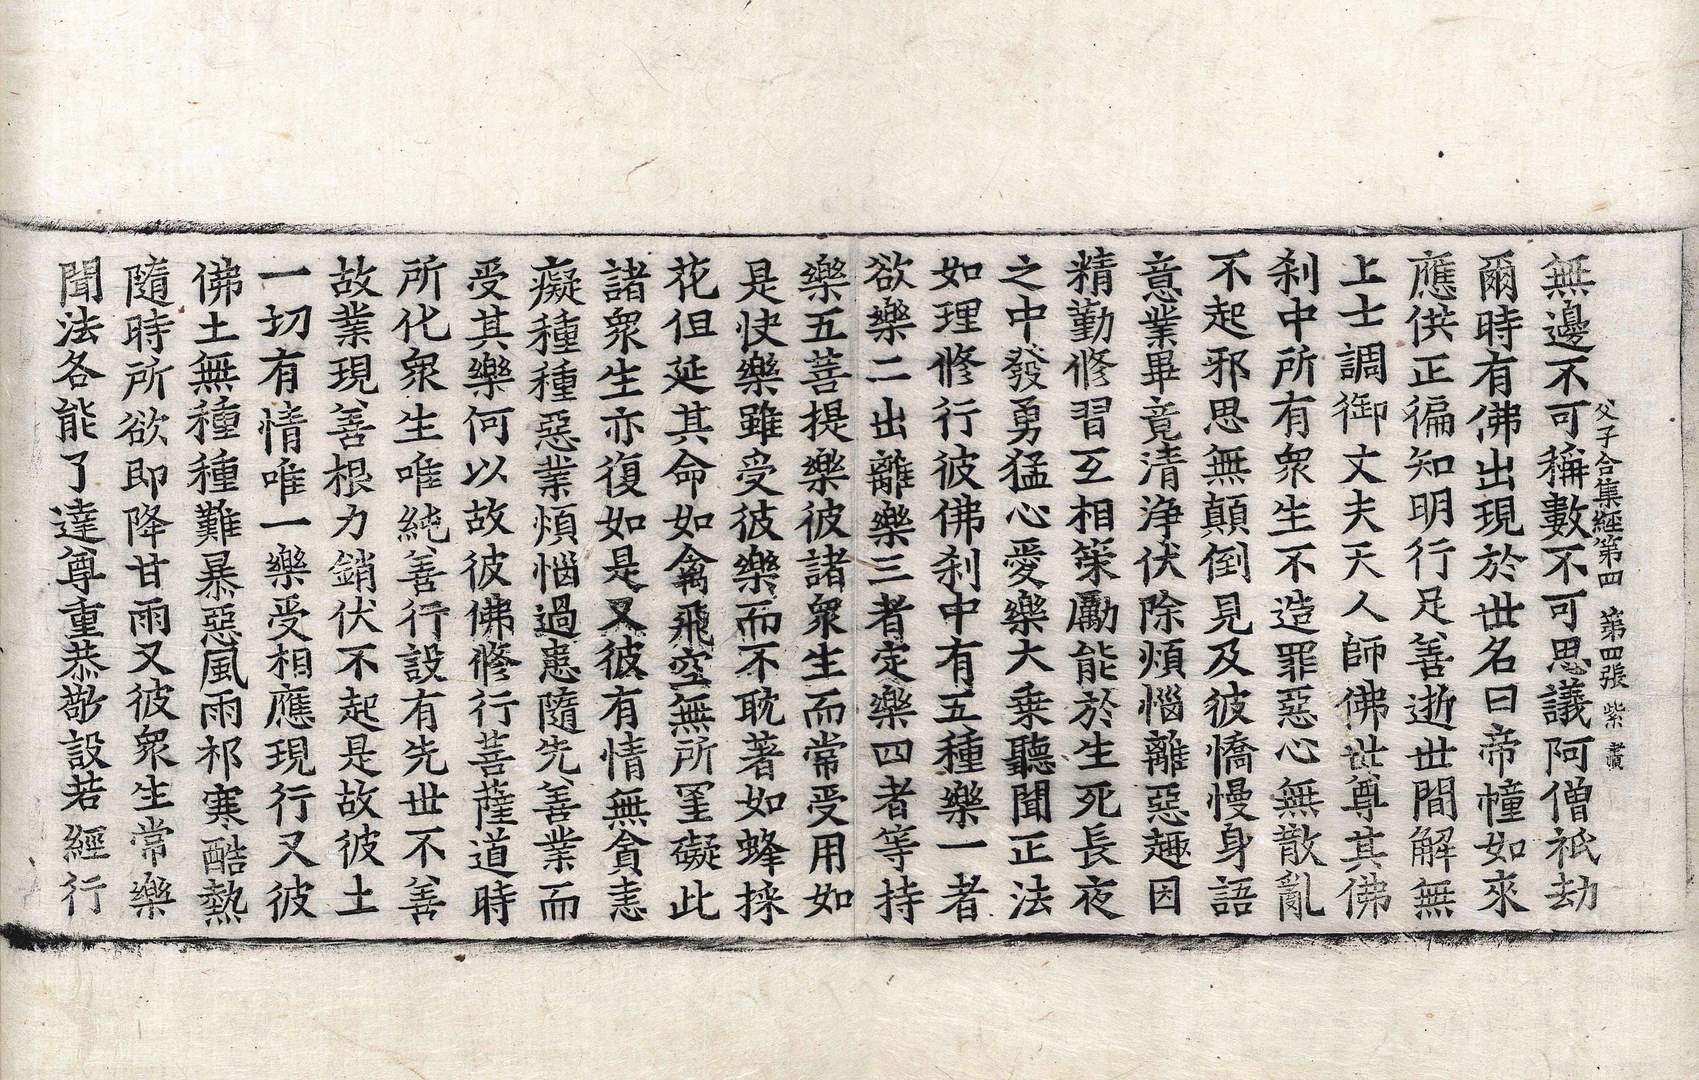 父子合集經第四 第四張 紫
無邊不可稱數不可思議阿僧祇劫
爾時有佛出現於世名曰帝幢如來
應供正徧知明行足善逝世間解無
上士調御丈夫天人師佛世尊其佛
刹中所有衆生不造罪惡心無散亂
不起邪思無顛倒見及彼憍慢身語
意業畢竟清淨伏除煩惱離惡趣因
精勤修習互相策勵能於生死長夜
之中發勇猛心愛樂大乗聽聞正法
如理修行彼佛刹中有五種樂一者
欲樂二出離樂三者定樂四者等持
樂五菩提樂彼諸衆生而常受用如
是快樂雖受彼樂而不耽著如蜂採
花但延其命如禽飛空無所罣礙此
諸衆生亦復如是又彼有情無貪恚
癡種種惡業煩惱過患隨先善業而
受其樂何以故彼佛修行菩薩道時
所化衆生唯純善行設有先世不善
故業現善根力銷伏不起是故彼土
一切有情唯一樂受相應現行又彼
佛土無種種難暴惡風雨祁寒酷熱
隨時所欲即降甘雨又彼衆生常樂
聞法各能了達尊重恭敬設若經行